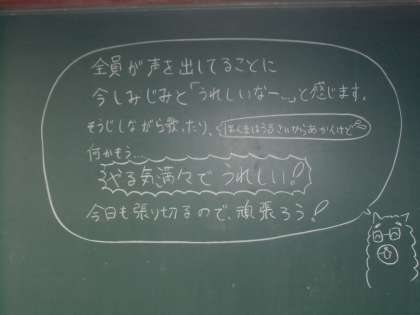 全員が声を出してることに
今しみじみと「うれしいなー…」と感じます。
そうじしながら歌ったり、
はうるさいからあかんけど
何かもう…
やる気満々で うれしい!
今日も張り切るので、頑張ろう!